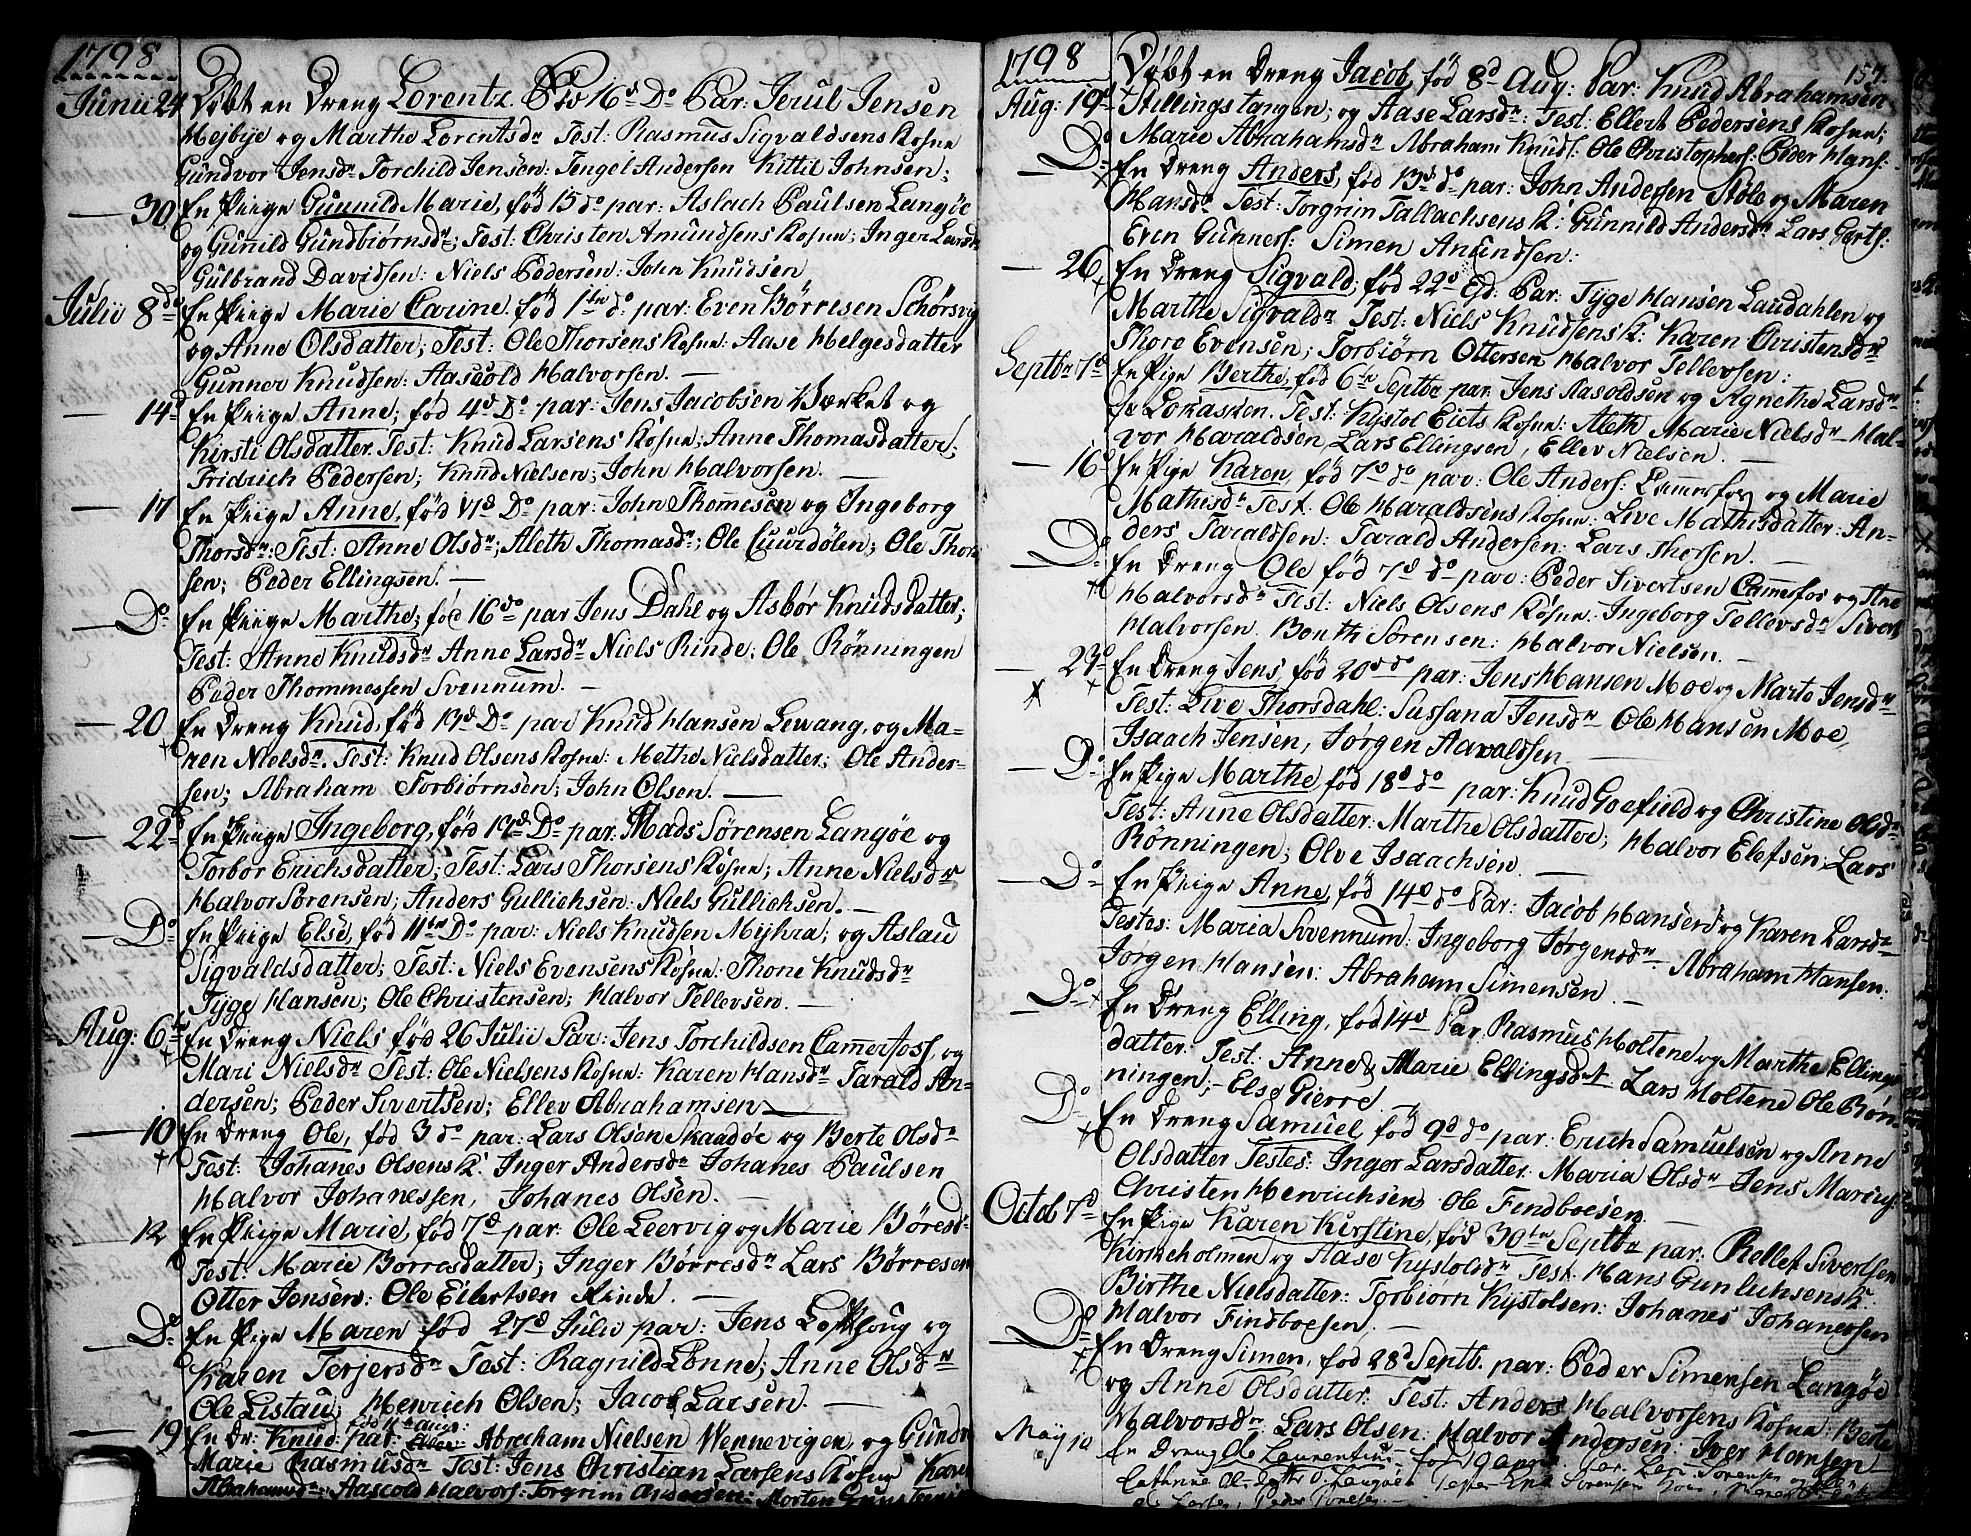 1798
Junii 24 Döbt en Dreng Lorentz. Fø 16d Do Par: Jerul Jensen
Hejbÿe og Marthe Lorentsdr Test: Rasmus Sigvaldsens Kosne
Gundvor Jensdr Torchild Jensen: Tengel Andersen Kittil Johnsen;
30 En Piige Gunnild Marie, fød 15 do par: Aslach Paulsen Langöe
og Gunild Gundbiørnsdr; Test: Christen Amundsens Kosne; Inger Larsdr
Gulbrand Davidsen: Niels Pedersen: John Knudsen
Julii 8de En Piige Marie Carine, fød 1te do par: Even Börresen Schörsvig
og Anne Olsdatter; Test: Ole Thorsens Kosne: Aase Helgesdatter
Gunner Knudsen: Aascold Halvorsen. —
14d En Piige Anne; fød 4d Do par: Jens Jacobsen Værket og
Kirsti Olsdatter. Test: Knud Larsens Kosne; Anne Thomasdatter;
Fridrich Pedersen; Knud Nielsen; John Halvorsen. —
17 En Piige Anne, fød 11d Do par: John Thomesen og Ingeborg
Thorsdr: Test: Anne Olsdr; Aleth Thomasdr; Ole Cuurdölen; Ole Thor-
sen; Peder Ellingsen. —
Do En Piige Marthe; fød 16 do par Jens Dahl og Asbör Knudsdatter;
Test: Anne Knudsdr Anne Larsdr Niels Rinde; Ole Rönningen
Peder Thommessen Svennum. —
20 En Dreng Knud, fød 13d Do par Knud Hansen Lewang, og Ma-
ren Nielsdr. Test: Knud Olsens Kosne: Methe Nielsdatter; Ole Ander-
sen; Abraham Torbiørnsen; John Olsen. —
22d En Piige Ingeborg, fød 13d Do par: Mads Sörensen Langöe og
Torbor Erichsdatter; Test: Lars Thorsens Kosne; Anne Nielsdr
Halvor Sörensen; Anders Gullichsen: Niels Gullichsen. —
Do En Piige Else, fød 11te Do par: Niels Knudsen Mÿhra; og Aslau
Sigvaldsdatter; Test: Niels Evensens Kosne: Thone Knudsdr
Tÿge Hansen; Ole Christensen; Halvor Tellevsen. —
Aug: 6te En Dreng Niels fød 26 Julii Par: Jens Torchildsen Camerfoss, og
Mari Nielsdr Test: Ole Nielsens Kosne: Karen Hansdr Tarald An-
dersen; Peder Sivertsen; Ellev Abrahamsen
10 En Dreng Ole, fød 3 do par: Lars Olsen Skaadöe og Berte Olsdr
Test: Johanes Olsens K: Inger Andersdr Johanes Paulsen
Halvor Johanessen, Johanes Olsen. —
12 En Piige Marie, fød 7d par: Ole Leervig og Marie Böresdr
Test: Marie Borresdatter; Inger Börresdr Lars Börresen
Otter Jensen: Ole Eilertsen Rinde. —
Do En Pige Maren fød 27d Julii par: Jens og
Karen Terjersdr Test: Ragnild Lönne; Anne Olsdr
Ole Listau; Henrich Olsen; Jacob Larsen. —
fød 11te Aug:
19 En Dr: Knud, par: Abraham Nielsen Wennevigen, og Gundr
Marie Rasmusdr Test: Jens Christian Larsens Kosne Karen
Abrahamsdr: Aascold Halvors: Torgrim Andersen: Morten
1798
157.
Aug: 19d Döbt en Dreng Jacob, fød 8d Aug: Par: Knud Abrahamsen
Stillingstangen; og Aase Larsdr: Test: Ellert Pedersens Kosne;
Marie Abrahamsdr Abraham Knuds: Ole Christophers: Peder Hans:
Do En Dreng Anders, fød 13d do par: John Andersen Stöle og Maren
Hansdr Test: Torgrim Tallachsens K: Gunnild Andersdr Lars Gerts:
Even Gunners: Simen Anundsen:
26 En Dreng Sigvald; fød 22d Ejd: Par: Tÿge Hansen Laudahlen og
Marthe Sigvaldr Test: Niels Knudsens K: Karen Christensdr
Thore Evensen; Torbiørn Ottersen Halvor Tellevsen:
Septbr 7d En Pige Berthe, fød 6te Septbr par: Jens Aasoldsen og Agnethe Larsdr
Lokasken. Test: Kÿstol Eiets Kosne: Aleth Marie Nielsdr Hal-
vor Haraldsen Lars Ellingsen, Ellev Nielsen. —
16d En Pige Karen, fød 7d do par: Ole Anders: Camerfos og Marie
Mathisdr Test. Ole Haraldsens Kosne: Live Mathisdatter: An-
ders Taraldsen: Tarald Andersen: Lars Thorsen. —
Do En Dreng Ole fød 7d do par: Peder Sivertsen Camerfos og Ane
Halvorsdr Test: Niels Olsens Kosne: Ingeborg Tellevsdr Sivert
Halvorsen. Bonth Sörensen: Halvor Nielsen. —
23d En Dreng Jens, fød 20d do par: Jens Hansen Moe og Marte Jensdr
Test: Live Thorsdahl: Sussana Jensdr Ole Hansen Moe,
Isaach Jensen, Jørgen Aavaldsen
Do En Pige Marthe fød 18d do par: Knud Goefield og Christine Olsdr
Test: Anne Olsdatter: Marthe Olsdatter; Halvor Elefsen: Lars
Rönningen; Olve Isaachsen. —
Do En Piige Anne, fød 14d do Par: Jacob Hansen og Karen Larsdr
Testes: Maria Svennum: Ingeborg Jörgensdr Abraham Hansen:
Jörgen Hansen: Abraham Simensen. —
Do En Dreng Elling, fød 14d Par Rasmus Holtene og Marthe Ellings
datter: Test: Anne & Marie Ellingsdr Lars Holtene Ole Rön-
ningen; Else Gierre.
Do En Dreng Samuel fød 9d do par: Erich Samuelsen og Anne
Olsdatter Testes: Inger Larsdatter: Maria Olsdr Jens Marius:
Christen Henrichsen Ole Findboesen. —
Octob 7d En Pige Karen Kirstine, fød 30te Septbr par: Rellef Sivertsen
Kirneholmen og Aase Kÿstolsdr Test. Hans Gunlichsens K:
Birthe Nielsdatter: Torbiørn Kÿstolsen: Johanes Johanessen
Halvor Findboesen. —
Do En Dreng Simen, fød 28d Septb. par: Peder Simensen Langöe
og Anne Olsdatter: Test: Anders Halvorsens Kosne: Berte
Halvorsdr Lars Olsen: Halvor Andersen: Iver Hansen —
Maÿ 10 En Dreng Ole Laurentius fød 19 april Par: Lars Sörensen og
Cathrine Olsdatter Langöe Test
Peder Tønesen